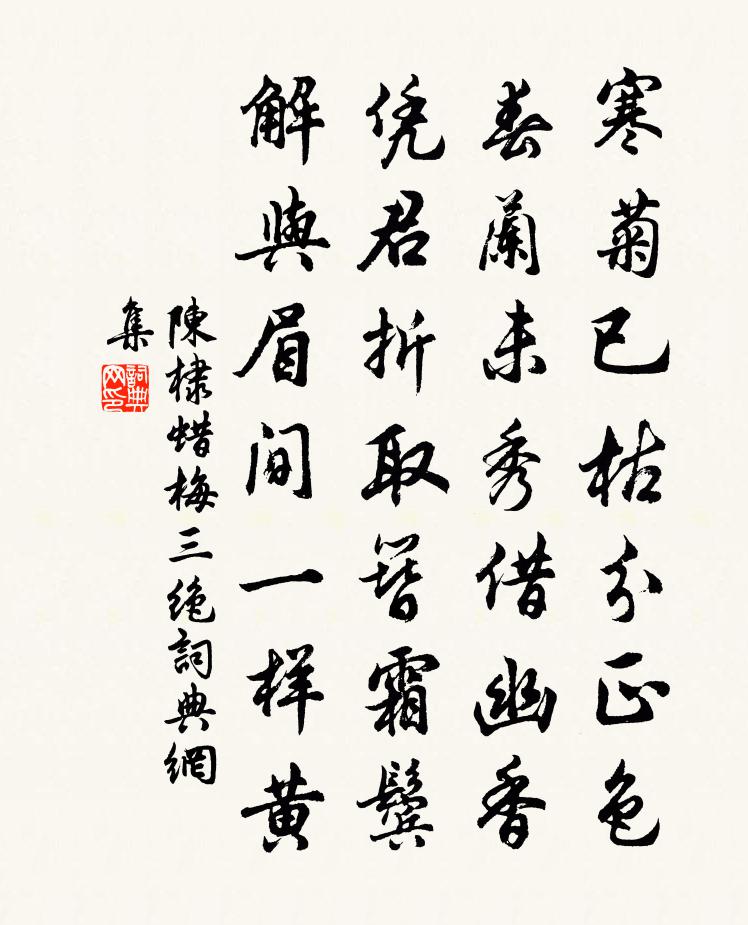 寒菊已枯分正色
春蘭未秀借幽香
凭君折取簪霜鬓
解與眉間一样黄
陳棣蜡梅三绝詞典網
集
詞典网印